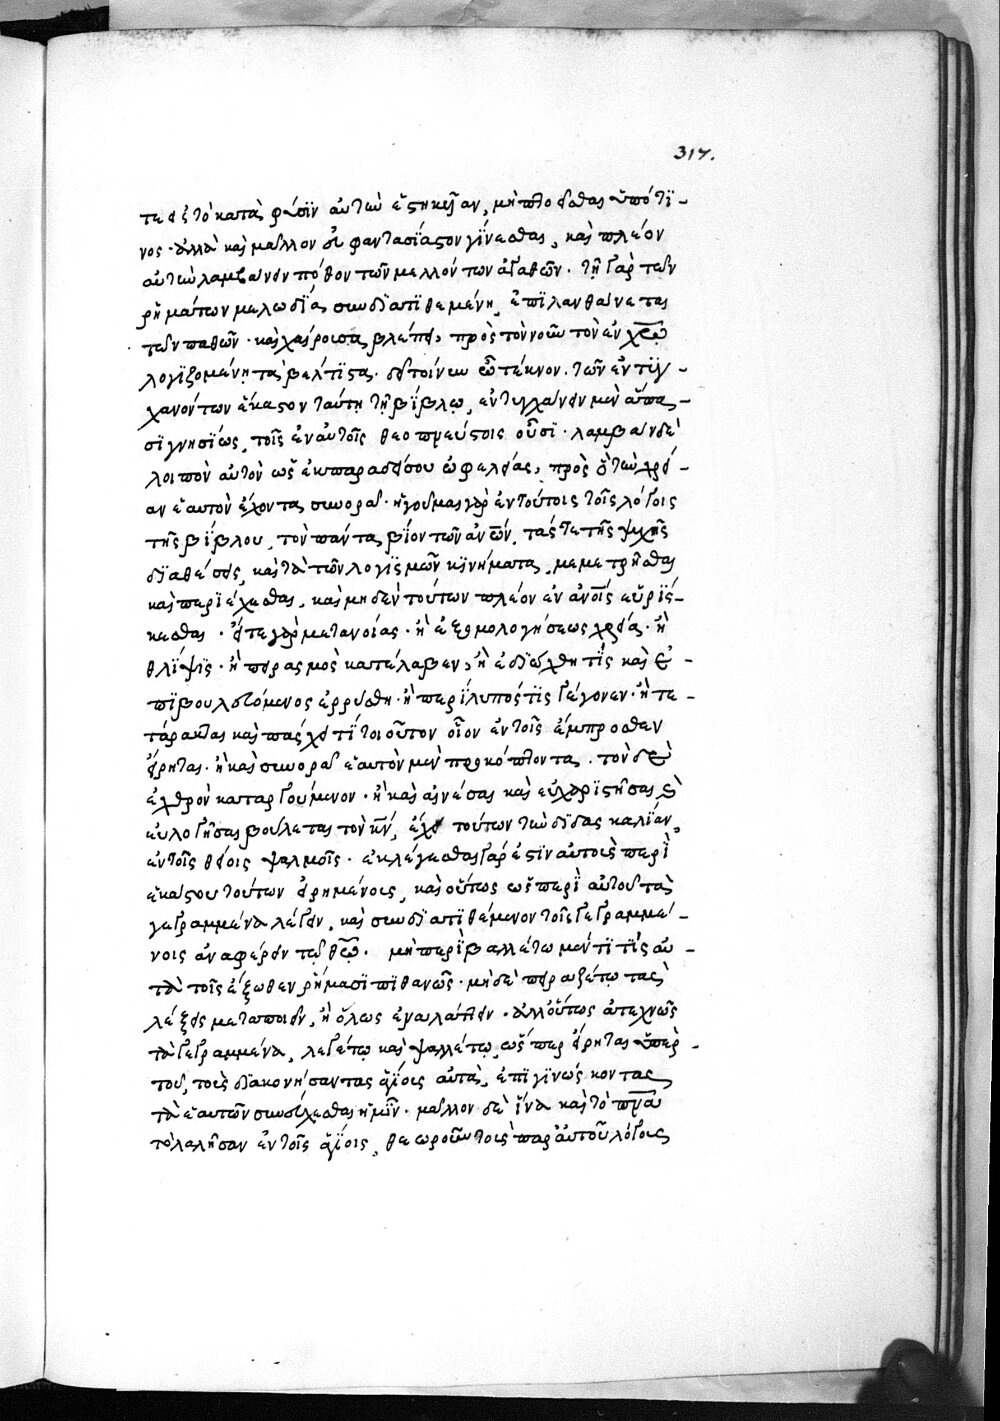 317.
τε εἰς τὸ κατὰ φύσϊν αὐτὴν ἑστηκέϊαν, μὴ πτοεῖσθαι ὑπό τϊ-
νος· ἀλλὰ καὶ μᾶλλον ἀφαντασίαστον γΐνεσθαι, καὶ πλέον
αὐτὴν λαμβάνειν πόθον τῶν μελλόντων ἀγαθῶν. τῇ γὰρ τῶν
ῥημάτων μελωδΐᾳ συνδϊατϊθεμένη, ἐπϊλανθάνεται
τῶν παθῶν· καὶ χαίρουσα βλέπει, πρὸς τὸν νοῦν τὸν ἐν χῶ
λογϊζομένη τὰ βέλτϊστα. σὺ τοίνυν ὦ τέκνον. τῶν ἐντϊγ-
χανόντων ἕκαστον ταύτῃ τῇ βΐβλῳ, ἐντυγχάνειν μὲν ἅπα-
σϊ γνησΐως, τοῖς ἐν αὐτοῖς θεοπνεύστοις οὖσϊ· λαμβάνειν δὲ
λοιπὸν αὐτὸν ὡς ἐκ παραδείσου ὠφελείας, πρὸς ὃ τὴν χρεί-
αν ἑαυτὸν ἔχοντα συνορᾶ· ἡγοῦμαι γὰρ ἐν τούτοις τοῖς λόγοις
τῆς βΐβλου, τὸν πάντα βΐον τῶν ἀνῶν, τάς τε τῆς ψυχῆς
δϊαθέσεις, καὶ τὰ τῶν λογϊσμῶν κϊνήματα, μεμετρῆσθαι
καὶ περϊέχεσθαι, καὶ μηδὲν τούτων πλέον ἐν ἀνοῖς εὑρΐσ-
κεσθαι. εἴτε γὰρ μετανοίας· ἢ ἐξομολογήσεως χρεία· ἢ
θλΐψϊς· ἢ πειρασμὸς κατέλαβεν, ἢ ἐδϊώχθη τϊς καὶ ἐ-
πϊβουλευόμενος ἐρρύσθη· ἢ περΐλυπός τϊς γέγονεν· ἢ τε-
τάρακται καὶ πάσχει τϊ τοιοῦτον οἷον ἐν τοῖς ἔμπροσθεν
εἴρηται· ἢ καὶ συνορᾶ ἑαυτὸν μὲν προκόπτοντα, τὸν δὲ
ἐχθρὸν καταργούμενον· ἢ καὶ αἰνέσαι καὶ εὐχαρϊστῆσαι καὶ
εὐλογῆσαι βούλεται τὸν κν, ἔχει τούτων τὴν δϊδασκαλΐαν,
ἐν τοῖς θείοις ψαλμοῖς. ἐκλέγεσθαι γάρ ἐστϊν αὐτοὺς περϊ
ἑκάστου τούτων εἰρημένοις, καὶ οὕτως ὡς περὶ αὐτοῦ τὰ
γεγραμμένα λέγειν, καὶ συνδϊατϊθέμενον τοῖς γεγραμμέ-
νοις ἀναφέρειν τῷ θῶ. μὴ περϊβαλλέτω μέντϊ τϊς αὐ-
τὰ τοῖς ἔξωθεν ῥήμασϊ πϊθανοῖς· μὴ δὲ πειραζέτω τὰς
λέξεις μεταποιεῖν, ἢ ὅλως ἐναλάττειν· ἀλλ' οὕτως ἀτεχνῶς
τὰ γεγραμμένα, λεγέτω καὶ ψαλλέτω, ὥσπερ εἴρηται ὑπὲρ-
τοῦ, τοὺς δϊακονήσαντας ἁγΐοις αὐτὰ, ἐπϊγϊνώσκοντας
τὰ ἑαυτῶν συνεύχεσθαι ἡμῖν· μᾶλλον δὲ ἵνα καὶ τὸ πνα
τὸ λαλῆσαν ἐν τοῖς ἁγΐοις, θεωροῦν τοὺς παρ' αὐτοῦ λόγους